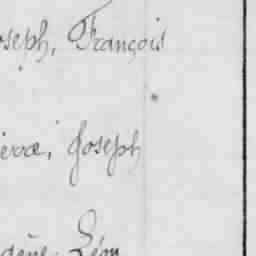 oseph, François
ierre, Joseph
gène, Léon